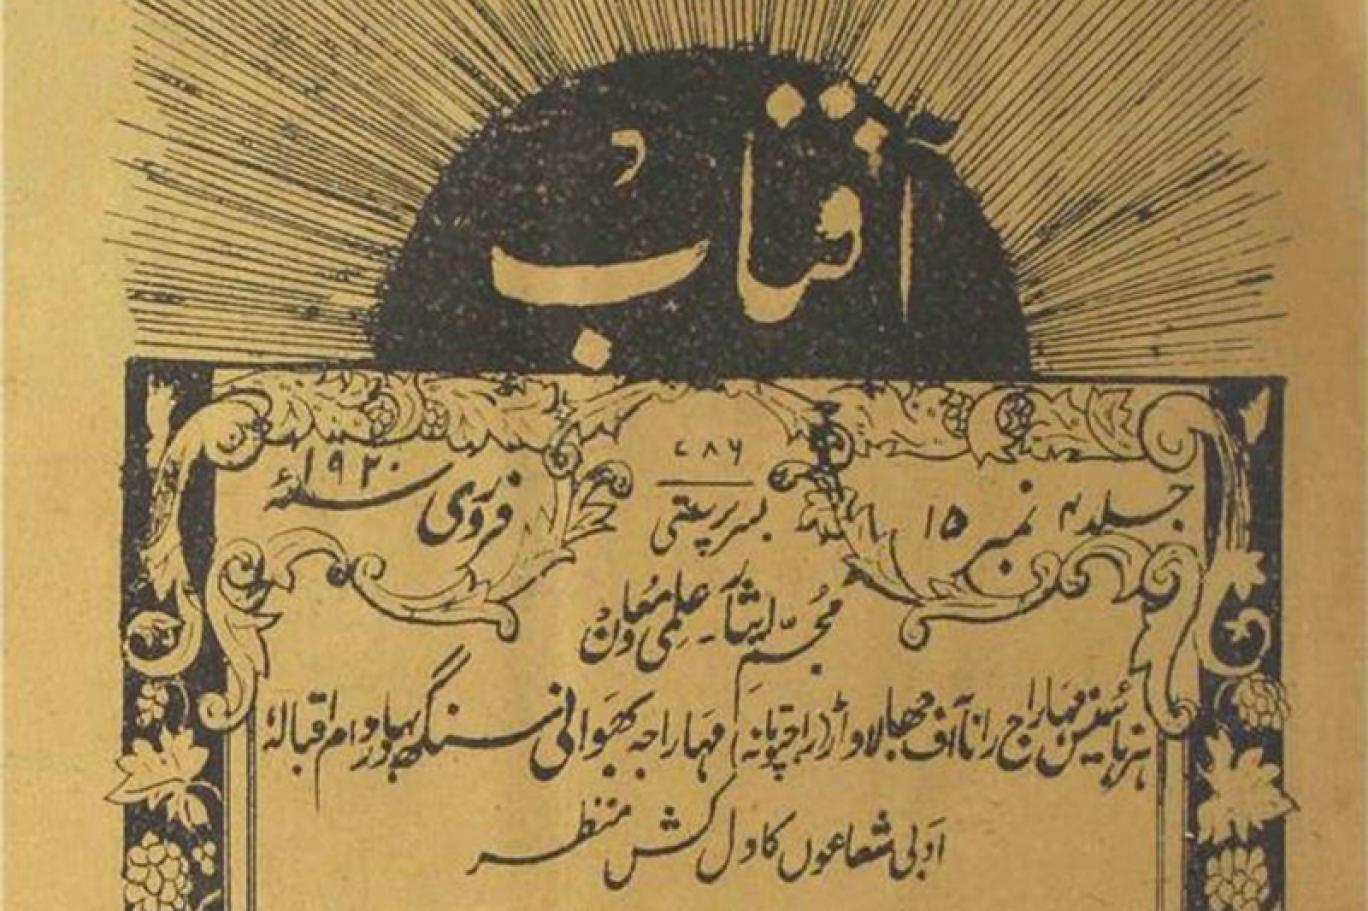 آفتاب
۷۸۶
جلد ۴ نمبر ۱۵
فروری سنہ ۱۹۲۰ء
بسرپرستی
مجسمِ ایثار علمی معاون
ہز ہائینس مہاراج رانا آف جھالاواڑ (راجپوتانہ) مہاراجہ بھوانی سنگھ بہادر دام اقبالہٗ
ادبی شعاعوں کا دل کش منظر